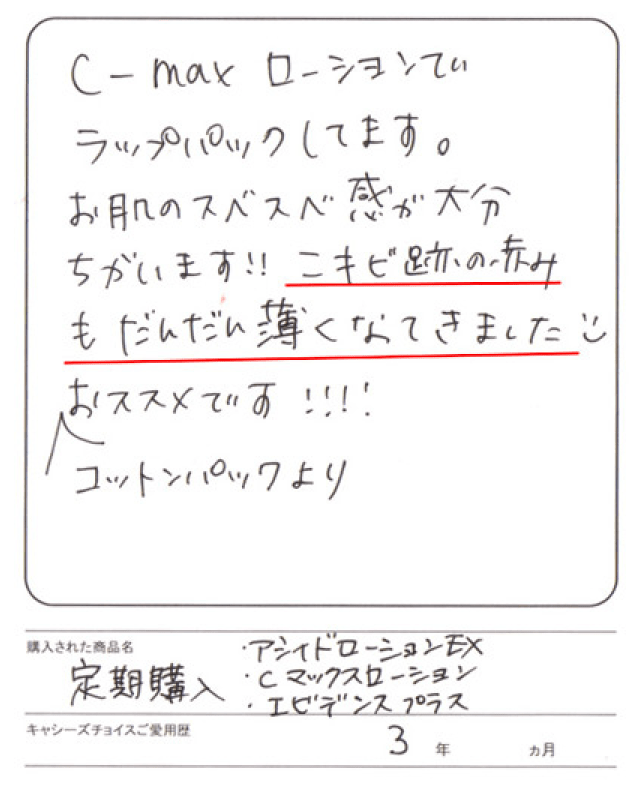 C-max ローションで
ラップパックしてます。
お肌のスベスベ感が大分
ちがいます!! ニキビ跡の赤み
もだんだん薄くなてきました
おススメです !!!!
コットンパックより
購入された商品名
定期購入
・アシィドローションEX
・Cマックスローション
・エビデンスプラス
キャシーズチョイスご愛用歴
3 年 ヵ月